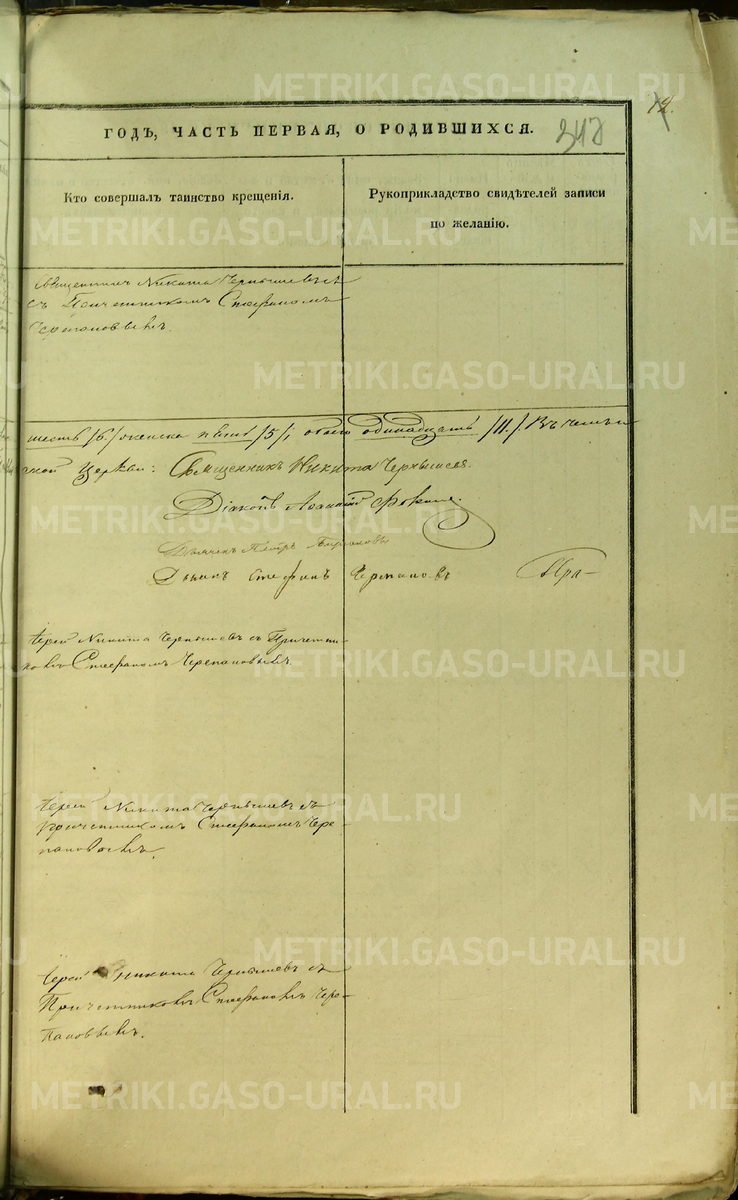 METRIKI.GASO-URAL.RU
12.
ГОДЪ, ЧАСТЬ ПЕРВАЯ, О РОДИВШИХСЯ.
Кто совершалъ таинство крещенія.
Рукоприкладство свидѣтелей записи
по желанію.
Священникъ Никита Чернышевъ
съ Причетникомъ Стефаномъ
Черепановымъ.
шесть /6/ женска пять /5/, обоего одинадцать /11/. Въ чемъ и
Церкви: Священникъ Никита Чернышевъ.
Діаконъ Іоаннъ
Дьячекъ Петръ
Стефанъ Черепановъ
Іерей Никита Чернышевъ съ Причетни-
комъ Стефаномъ Черепановымъ.
Іерей Никита Чернышевъ съ
Причетникомъ Стефаномъ Чере-
пановымъ.
Іерей Никита Чернышевъ съ
Причетникомъ Стефаномъ Чере-
пановымъ.